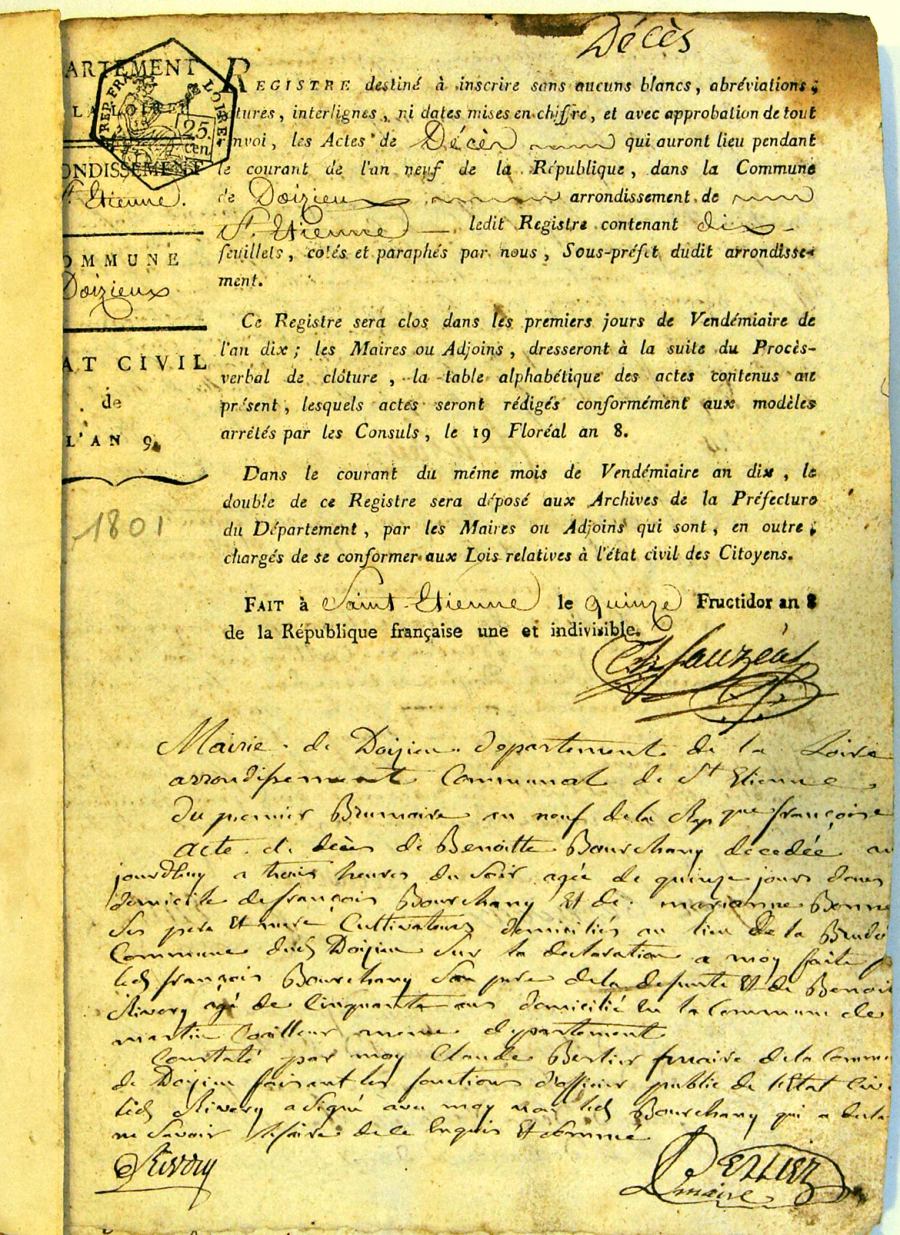 Décès
ARTEMENT
LA LOIRE
REP. FRA. LOIRE
25
cen
ONDISSEMENT
St. Etienne.
OMMUNE
Doizieux
AT CIVIL
de
L'AN 9.
1801
REGISTRE destiné à inscrire sans aucuns blancs, abréviations;
tures, interlignes, ni dates mises en chiffre, et avec approbation de tout
nvoi, les Actes de Décès qui auront lieu pendant
le courant de l'an neuf de la République, dans la Commune
de Doizieux arrondissement de
St. Etienne ledit Registre contenant dix
feuillets, cotés et paraphés par nous, Sous-préfet dudit arrondisse-
ment.
Ce Registre sera clos dans les premiers jours de Vendémiaire de
l'an dix; les Maires ou Adjoins, dresseront à la suite du Procès-
verbal de clôture, la table alphabétique des actes contenus au
présent, lesquels actes seront rédigés conformément aux modèles
arrétés par les Consuls, le 19 Floréal an 8.
Dans le courant du même mois de Vendémiaire an dix, le
double de ce Registre sera déposé aux Archives de la Préfecture
du Département, par les Maires ou Adjoins qui sont, en outre;
chargés de se conformer aux Lois relatives à l'état civil des Citoyens.
FAIT à Saint-Etienne le quinze Fructidor an 8
de la République française une et indivisible.
Mairie de Doizieu departement de la Loire
arrondissement Communal de St Etienne
du premier Brumaire an neuf de la Rep que françoise
acte de décès de Benoitte Bourchany decedée au
jourdhuy a trois heures du soir agée de quinze jours dans
domicile de françois Bourchany Et de marianne Bonne
Ses pere Et mere Cultivateurs domiciliés au lieu de la
Commune dud Doizieu Sur la declaration a moy faite p
led françois Bourchany Son pere de la defunte Et de Benoit
Rivory agé de Cinquante ans domicilié en la Commune de
martin Coailleux meme departement
Constaté par moy Claude Bertier maire de la Comm
de Doizieu faisant les fonctions d'officier public de l'Etat Civ
led Rivory a signé avec moy non led Bourchany qui a decla
ne Savoir le faire de ce Enquis Et Sommé
Rivory
BERTIER
maire